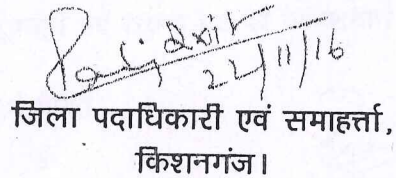 22/11/16
जिला पदाधिकारी एवं समाहर्त्ता,
किशनगंज।